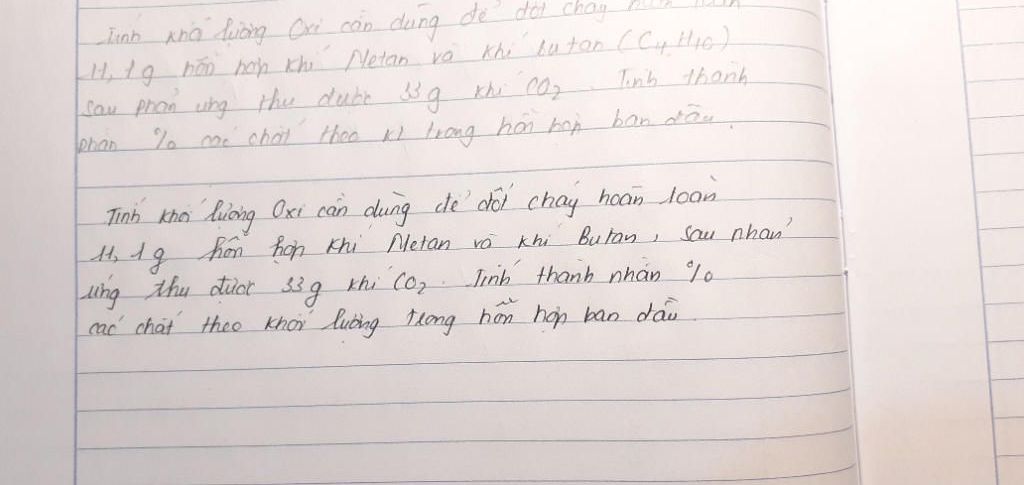 Tính khố lượng Oxi cần dùng để đốt cháy
11,1g hỗn hợp khí Metan và khí butan (C4H10)
sau phản ứng thu được 33g khí CO2. Tính thành
phần % các chất theo kl trong hỗn hợp ban đầu.
Tính khối lượng Oxi cần dùng để đốt cháy hoàn toàn
11,1g hỗn hợp khí Metan và khí Butan, sau phản
ứng thu được 33g khí CO2. Tính thành phần %
các chất theo khối lượng trong hỗn hợp ban đầu.